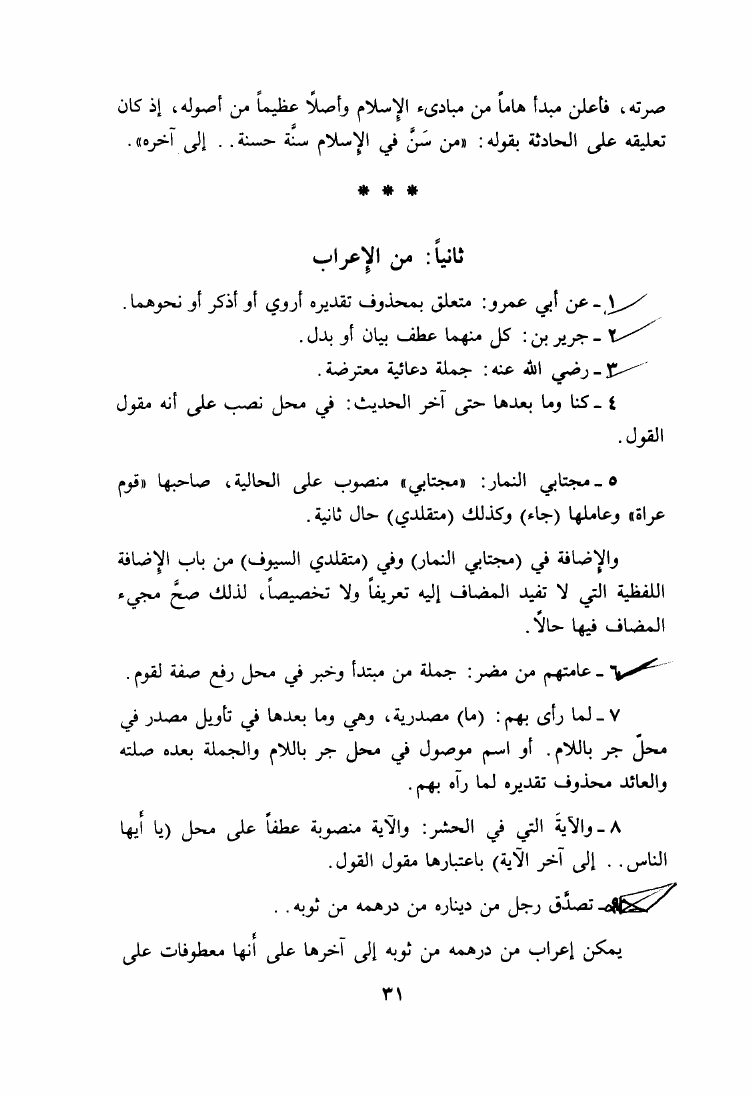 صرته، فأعلن مبدأ هاماً من مبادىء الإسلام وأصلاً عظيماً من أصوله، إذ كان
تعليقه على الحادثة بقوله: «من سَنَّ في الإسلام سنَّة حسنة. . إلى آخره».
* * *
ثانياً: من الإعراب
١ - عن أبي عمرو: متعلق بمحذوف تقديره أروي أو أذكر أو نحوهما.
٢ - جرير بن: كل منهما عطف بيان أو بدل.
٣ - رضي الله عنه: جملة دعائية معترضة.
٤ - كنا وما بعدها حتى آخر الحديث: في محل نصب على أنه مقول
القول.
٥ - مجتابي النمار: «مجتابي» منصوب على الحالية، صاحبها «قوم
عراة» وعاملها (جاء) وكذلك (متقلدي) حال ثانية.
والإضافة في (مجتابي النمار) وفي (متقلدي السيوف) من باب الإضافة
اللفظية التي لا تفيد المضاف إليه تعريفاً ولا تخصيصاً، لذلك صحَّ مجيء
المضاف فيها حالاً.
٦ - عامتهم من مضر: جملة من مبتدأ وخبر في محل رفع صفة لقوم.
٧ - لما رأى بهم: (ما) مصدرية، وهي وما بعدها في تأويل مصدر في
محلّ جر باللام. أو اسم موصول في محل جر باللام والجملة بعده صلته
والعائد محذوف تقديره لما رآه بهم.
٨ - والآيةَ التي في الحشر: والآية منصوبة عطفاً على محل (يا أيها
الناس. . إلى آخر الآية) باعتبارها مقول القول.
٩ - تصدَّق رجل من ديناره من درهمه من ثوبه. .
يمكن إعراب من درهمه من ثوبه إلى آخرها على أنها معطوفات على
٣١